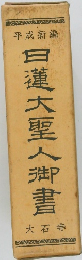 平成新編
日蓮大聖人御書
大石寺